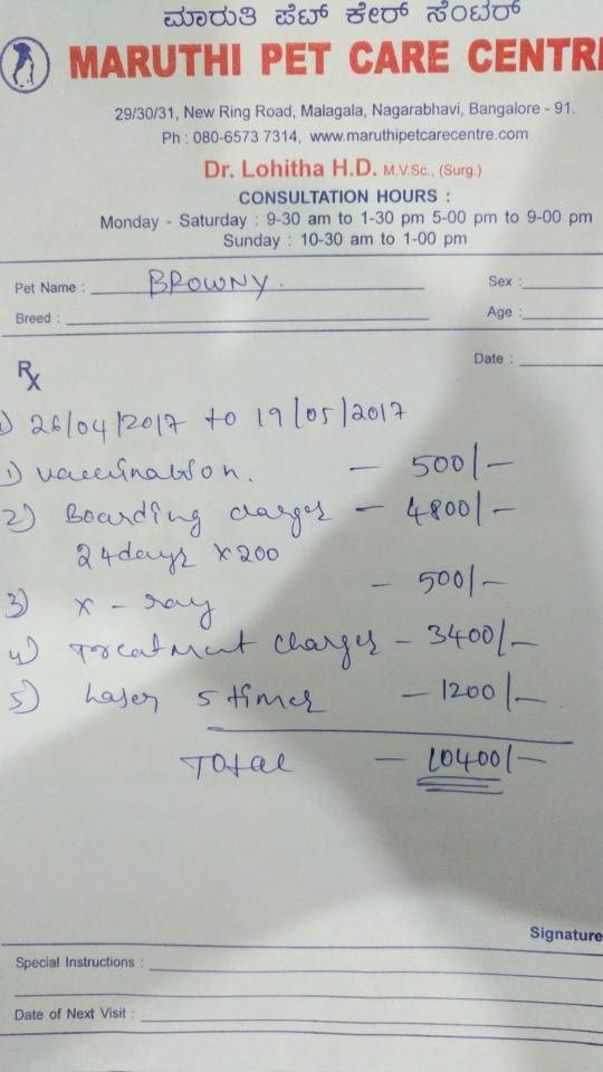 ಮಾರುತಿ ಪೆಟ್ ಕೇರ್ ಸೆಂಟರ್
MARUTHI PET CARE CENTRE
29/30/31, New Ring Road, Malagala, Nagarabhavi, Bangalore - 91.
Ph : 080-6573 7314, www.maruthipetcarecentre.com
Dr. Lohitha H.D. M.V.Sc., (Surg.)
CONSULTATION HOURS :
Monday - Saturday : 9-30 am to 1-30 pm 5-00 pm to 9-00 pm
Sunday : 10-30 am to 1-00 pm
Pet Name : BROWNY. Sex :
Breed : Age :
Date :
Rx
26/04/2017 to 19/05/2017
1) vaccination. - 500/-
2) Boarding charges - 4800/-
24days x200
3) x-ray - 500/-
4) Treatment charges - 3400/-
5) Laser 5 times - 1200/-
Total - 10400/-
Signature
Special Instructions :
Date of Next Visit :